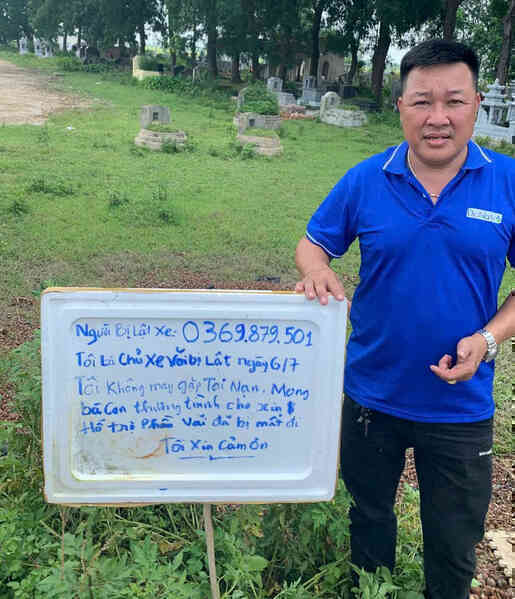 Người Bị Lật Xe: 0369.879.501
Tôi Là Chủ Xe Vải bị Lật ngày 6/7
Tôi Không may gặp Tai Nạn. Mong
bà Con thương tình cho xin $
Hổ trợ Phần Vải đã bị mất đi
Tôi Xin Cảm Ơn